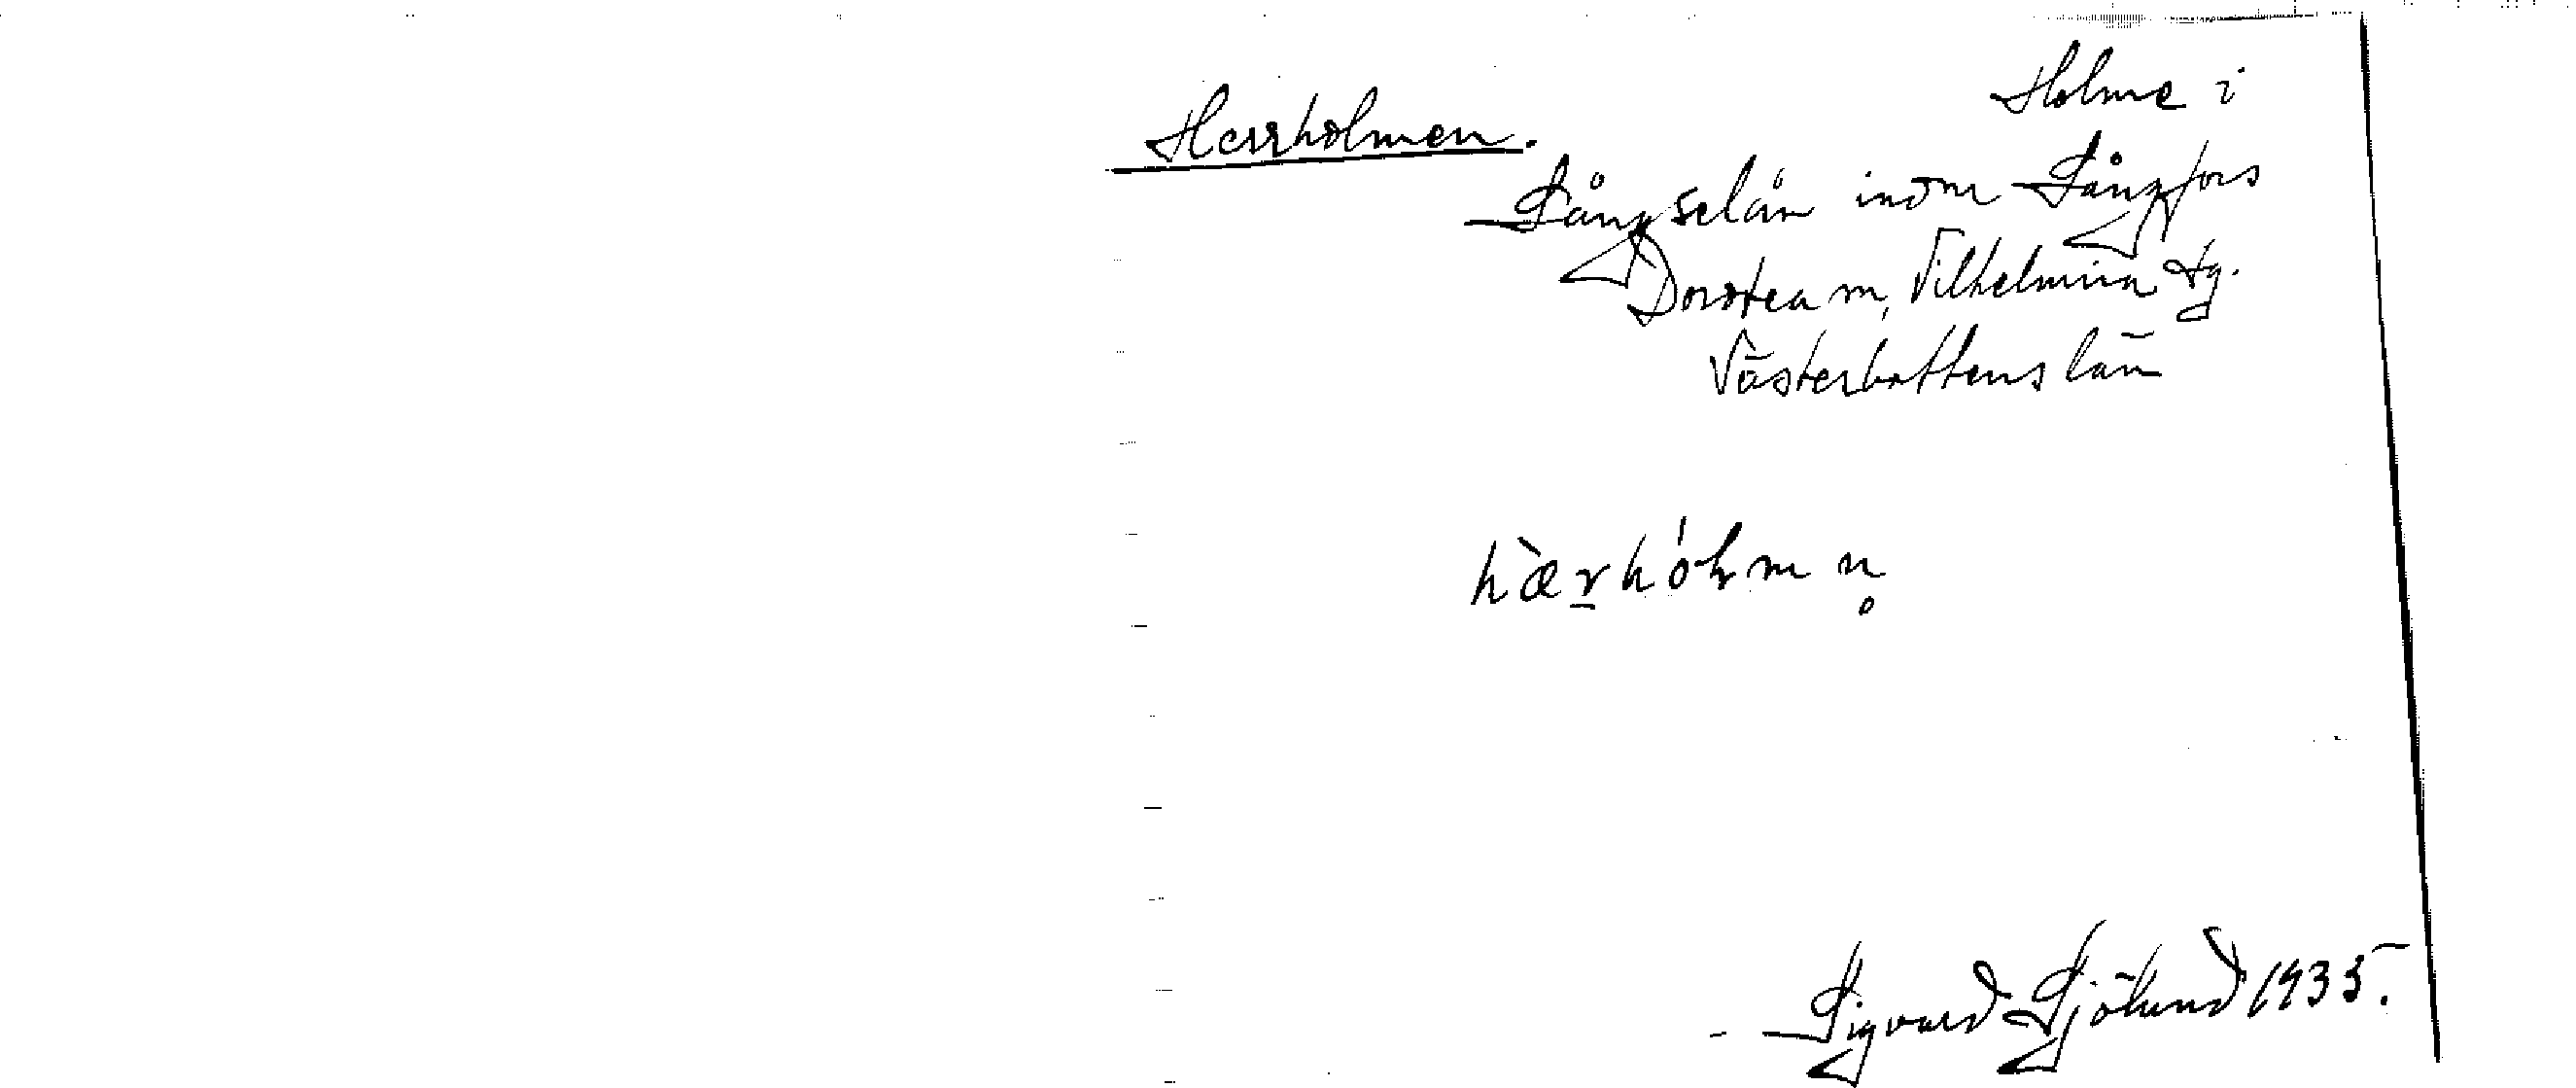 Herrholmen.
Holme i
Långselån inom Långfors
Dorotea sn, Vilhelmina tg.
Västerbottens län
hæ̀r̲hólmn̥
Sigvard Sjölund 1935.